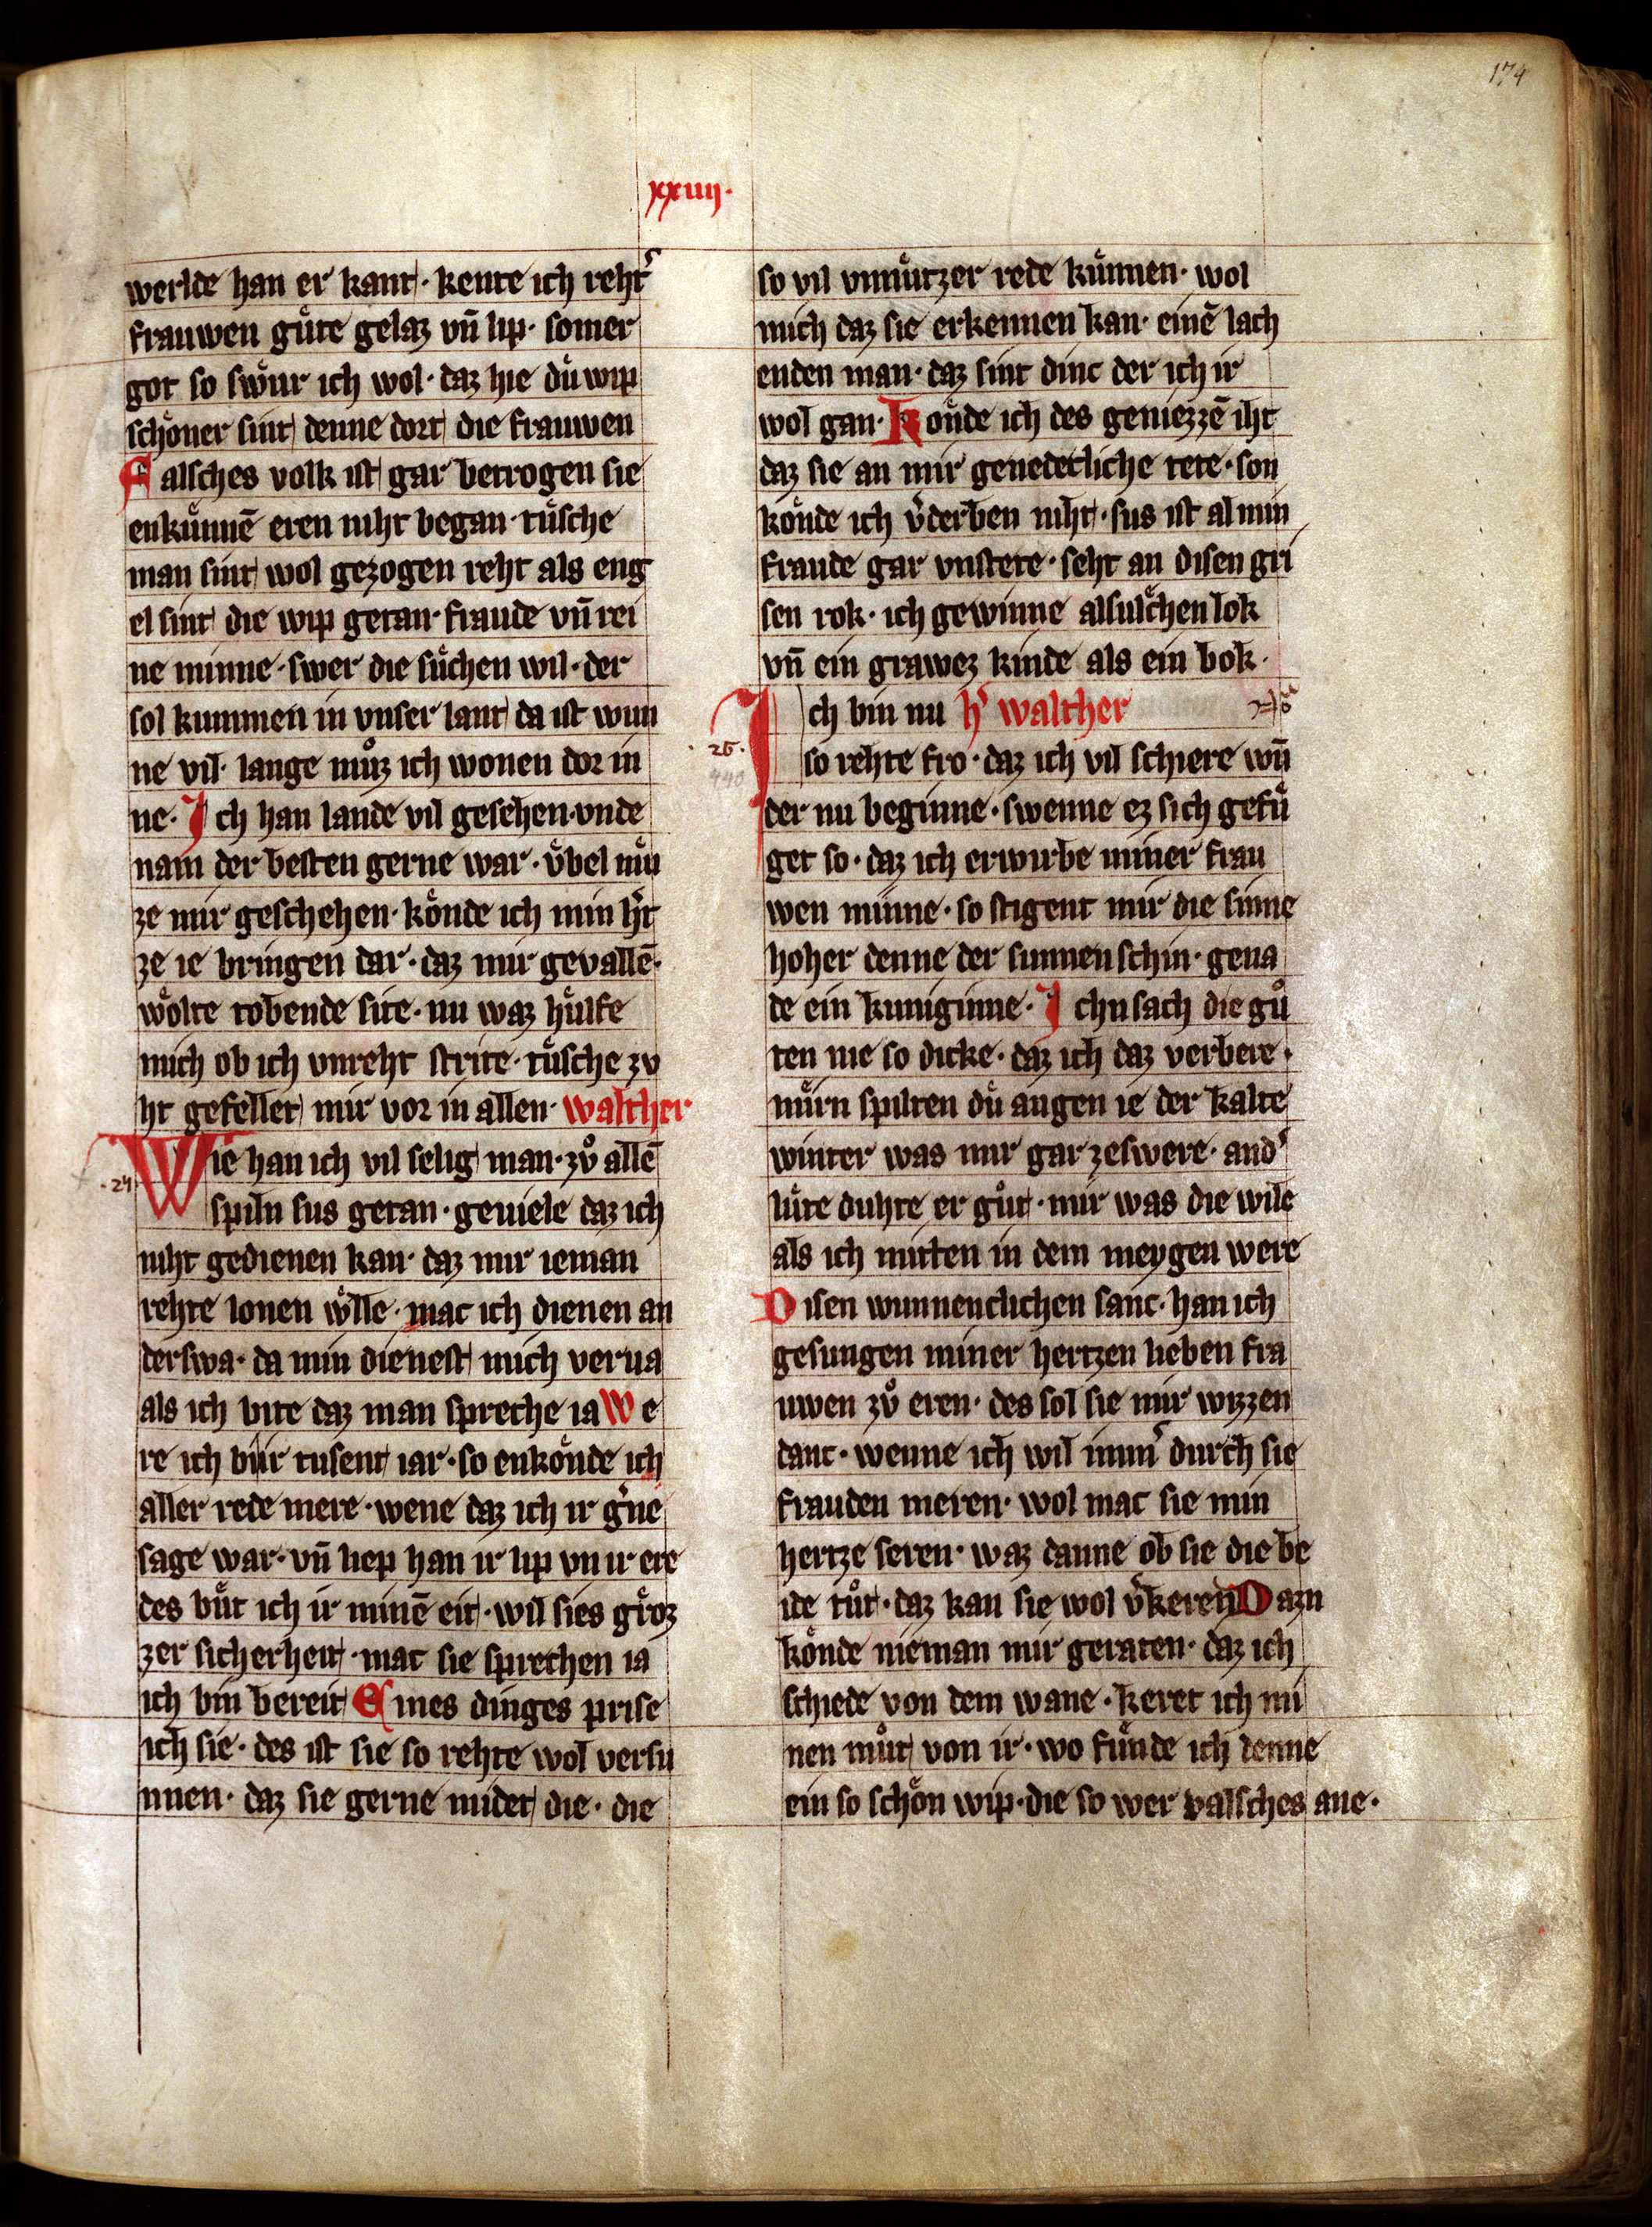 174
xxiiij·
werlde han er kant· kente ich reht᾽
frauwen guͤte gelaz vn̄ lip· somer
got so swuͤr ich wol· daz hie duͤ wip
schoͤner sint denne dort die frauwen
Falsches volk ist gar betrogen sie
enkuͤnnē eren niht began· tuͤsche
man sint wol gezogen reht als eng
el sint die wip getan· fraude vn̄ rei
ne minne· swer die suͤchen wil· der
sol kummen in vnser lant da ist wun
ne vil· lange muͦz ich wonen dor in
ne· Ich han lande vil gesehen· vnde
nam der besten gerne war· vͤbel muͤ
ze mir geschehen· koͤnde ich min h᾽t
ze ie bringen dar· daz mir gevallē·
woͤlte tobende site· nu waz huͤlfe
mich ob ich vnreht strite· tuͤsche zv
ht gefellet mir vor in allen· walther
·24· Wie han ich vil selig man· zvͦ allē
spiln sus getan· geuiele daz ich
niht gedienen kan· daz mir ieman
rehte lonen woͤlle· mac ich dienen an
derswa· da min dienest mich verua
als ich bite daz man spreche ia We
re ich bur tusent iar· so enkoͤnde ich
aller rede mere· wene daz ich ir g᾽ne
sage war· vn̄ liep han ir lip vn ir ere
des buͤt ich ir minē eit· wil sies groͤz
zer sicherheit· mac sie sprechen ia
ich bin bereit Eines dinges prise
ich sie· des ist sie so rehte wol versu
nnen· daz sie gerne midet die· die
so vil vnnuͤtzer rede kuͤnnen· wol
mich daz sie erkennen kan· einē lach
enden man· daz sint dinc der ich ir
wol gan· Koͤnde ich des geniezzē iht
daz sie an mir genedecliche tete· son
koͤnde ich v᾽derben niht· sus ist al min
fraude gar vnstete· seht an disen gri
sen rok· ich gewinne alsulchen lok
vn̄ ein grawez kinde als ein bok·
Ich bin nu h᾽ walther
·25· so rehte fro· daz ich vil schiere wn̄
440
der nu beginne· swenne ez sich gefuͤ
get so· daz ich erwirbe miner frau
wen minne· so stigent mir die sinne
hoher denne der sunnen schin· gena
de ein kuniginne· Ichn sach die guͦ
ten nie so dicke· daz ich daz verbere·
mirn spilten duͤ augen ie der kalte
winter was mir gar zeswere· and᾽
luͤte duhte er guͦt· mir was die wile
als ich mitten in dem meygen were
Disen wunnenclichen sanc· han ich
gesungen miner hertzen lieben fra
uwen zvͦ eren· des sol sie mir wizzen
danc· wenne ich wil imm᾽ durch sie
frauden meren· wol mac sie min
hertze seren· waz danne ob sie die be
ide tuͦt· daz kan sie wol v᾽keren Dazn
koͤnde nieman mir geraten· daz ich
schiede von dem wane· keret ich mi
nen muͦt von ir· wo fuͤnde ich denne
ein so schoͤn wip· die so wer valsches ane·